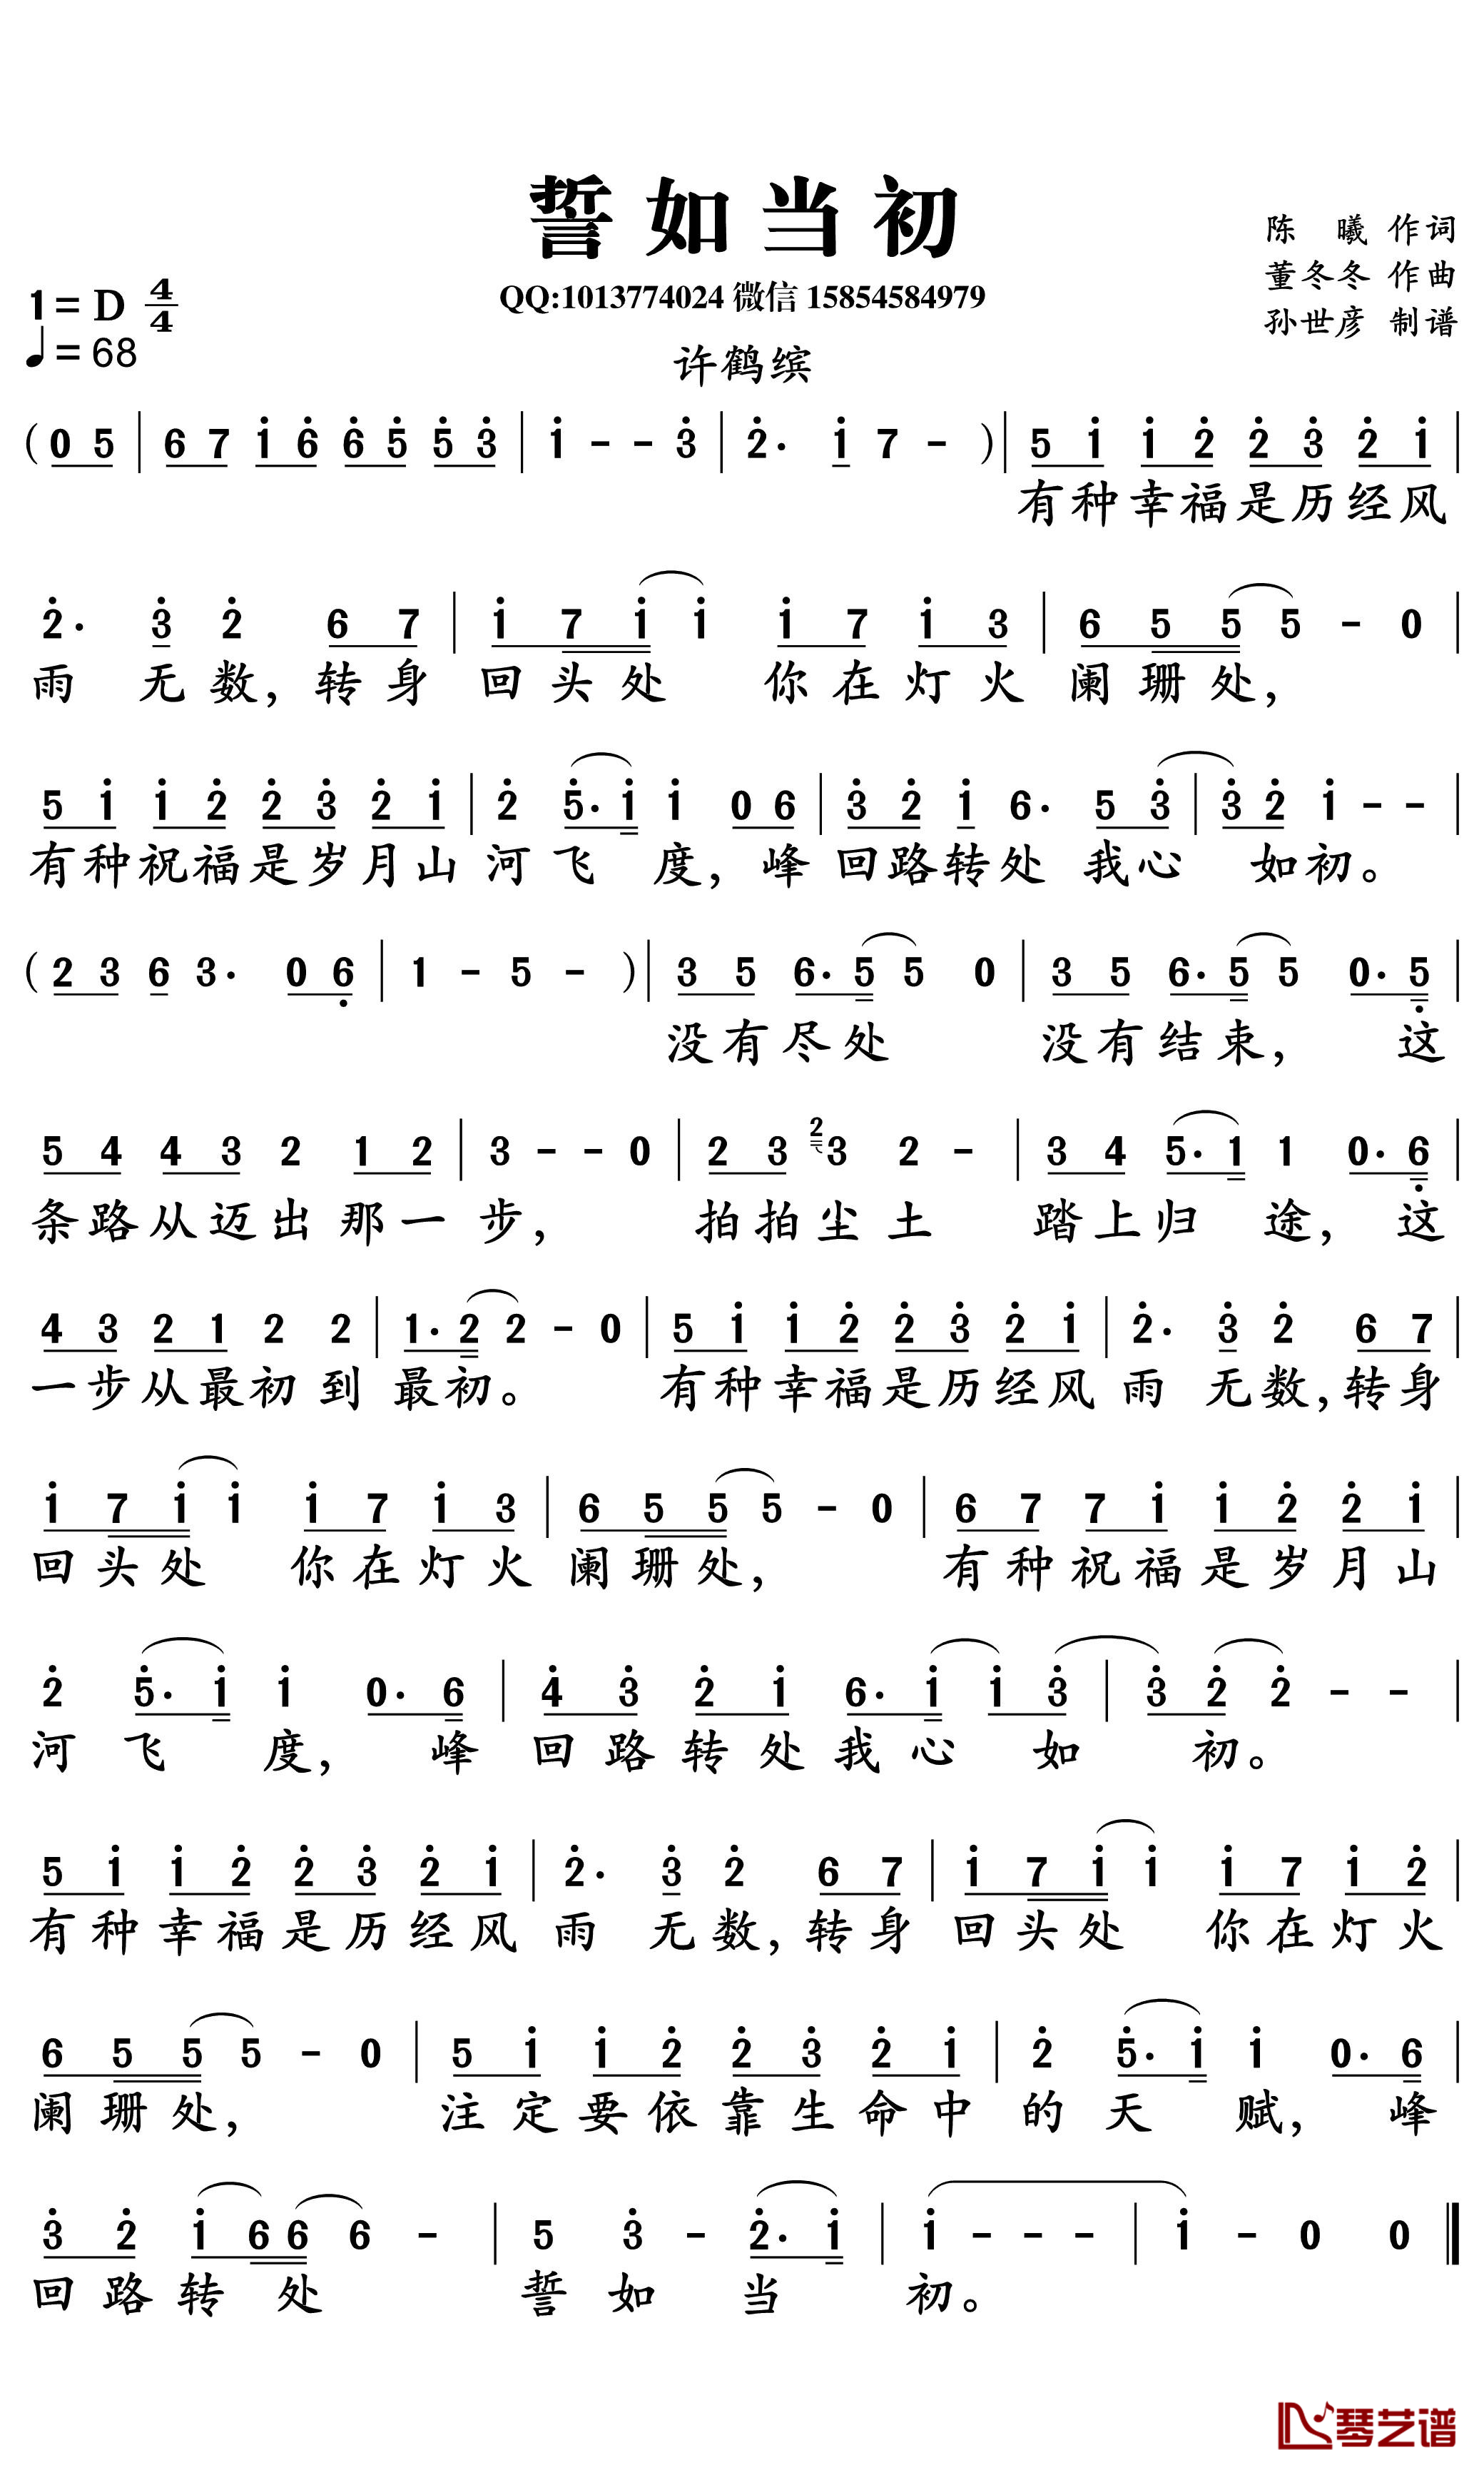 誓如当初
陈 曦 作词
董冬冬 作曲
孙世彦 制谱
1=D 4/4
♩=68
QQ:1013774024 微信 15854584979
许鹤缤
( 0 5 | 6 7 1̇ 6̇ 6̇ 5̇ 5̇ 3̇ | 1̇ - - 3̇ | 2̇· 1̇ 7 - ) | 5 1̇ 1̇ 2̇ 2̇ 3̇ 2̇ 1̇ |
有种幸福是历经风
2̇· 3̇ 2̇ 6 7 | 1̇ 7 1̇ 1̇ 1̇ 7 1̇ 3 | 6 5 5 5 - 0 |
雨 无数，转身 回头处 你在灯火 阑珊处，
5 1̇ 1̇ 2̇ 2̇ 3̇ 2̇ 1̇ | 2̇ 5̇· 1̇ 1̇ 0 6 | 3̇ 2̇ 1̇ 6· 5 3̇ | 3̇ 2̇ 1̇ - - |
有种祝福是岁月山 河飞 度，峰 回路转处 我心 如初。
( 2 3 6 3· 0 6̣ | 1 - 5 - ) | 3 5 6· 5 5 0 | 3 5 6· 5 5 0· 5̣ |
没有尽处 没有结束， 这
5 4 4 3 2 1 2 | 3 - - 0 | 2 3 2 3 2 - | 3 4 5· 1 1 0· 6̣ |
条路从迈出 那一 步， 拍拍尘土 踏上归 途， 这
4 3 2 1 2 2 | 1· 2 2 - 0 | 5 1̇ 1̇ 2̇ 2̇ 3̇ 2̇ 1̇ | 2̇· 3̇ 2̇ 6 7 |
一步从最初 到 最初。 有种幸福是历经风 雨 无数，转身
1̇ 7 1̇ 1̇ 1̇ 7 1̇ 3 | 6 5 5 5 - 0 | 6 7 7 1̇ 1̇ 2̇ 2̇ 1̇ |
回头处 你在灯火 阑珊处， 有种祝福是岁月山
2̇ 5̇· 1̇ 1̇ 0· 6 | 4̇ 3̇ 2̇ 1̇ 6· 1̇ 1̇ 3̇ | 3̇ 2̇ 2̇ - - |
河 飞 度， 峰 回路转处我心 如 初。
5 1̇ 1̇ 2̇ 2̇ 3̇ 2̇ 1̇ | 2̇· 3̇ 2̇ 6 7 | 1̇ 7 1̇ 1̇ 1̇ 7 1̇ 2̇ |
有种幸福是历经风 雨 无数，转身 回头处 你在灯火
6 5 5 5 - 0 | 5 1̇ 1̇ 2̇ 2̇ 3̇ 2̇ 1̇ | 2̇ 5̇· 1̇ 1̇ 0· 6 |
阑珊处， 注定要依靠生命中 的天 赋， 峰
3̇ 2̇ 1̇ 6 6 6 - | 5 3̇ - 2̇· 1̇ | 1̇ - - - | 1̇ - 0 0 ‖
回路转 处 誓 如 当 初。
琴艺谱